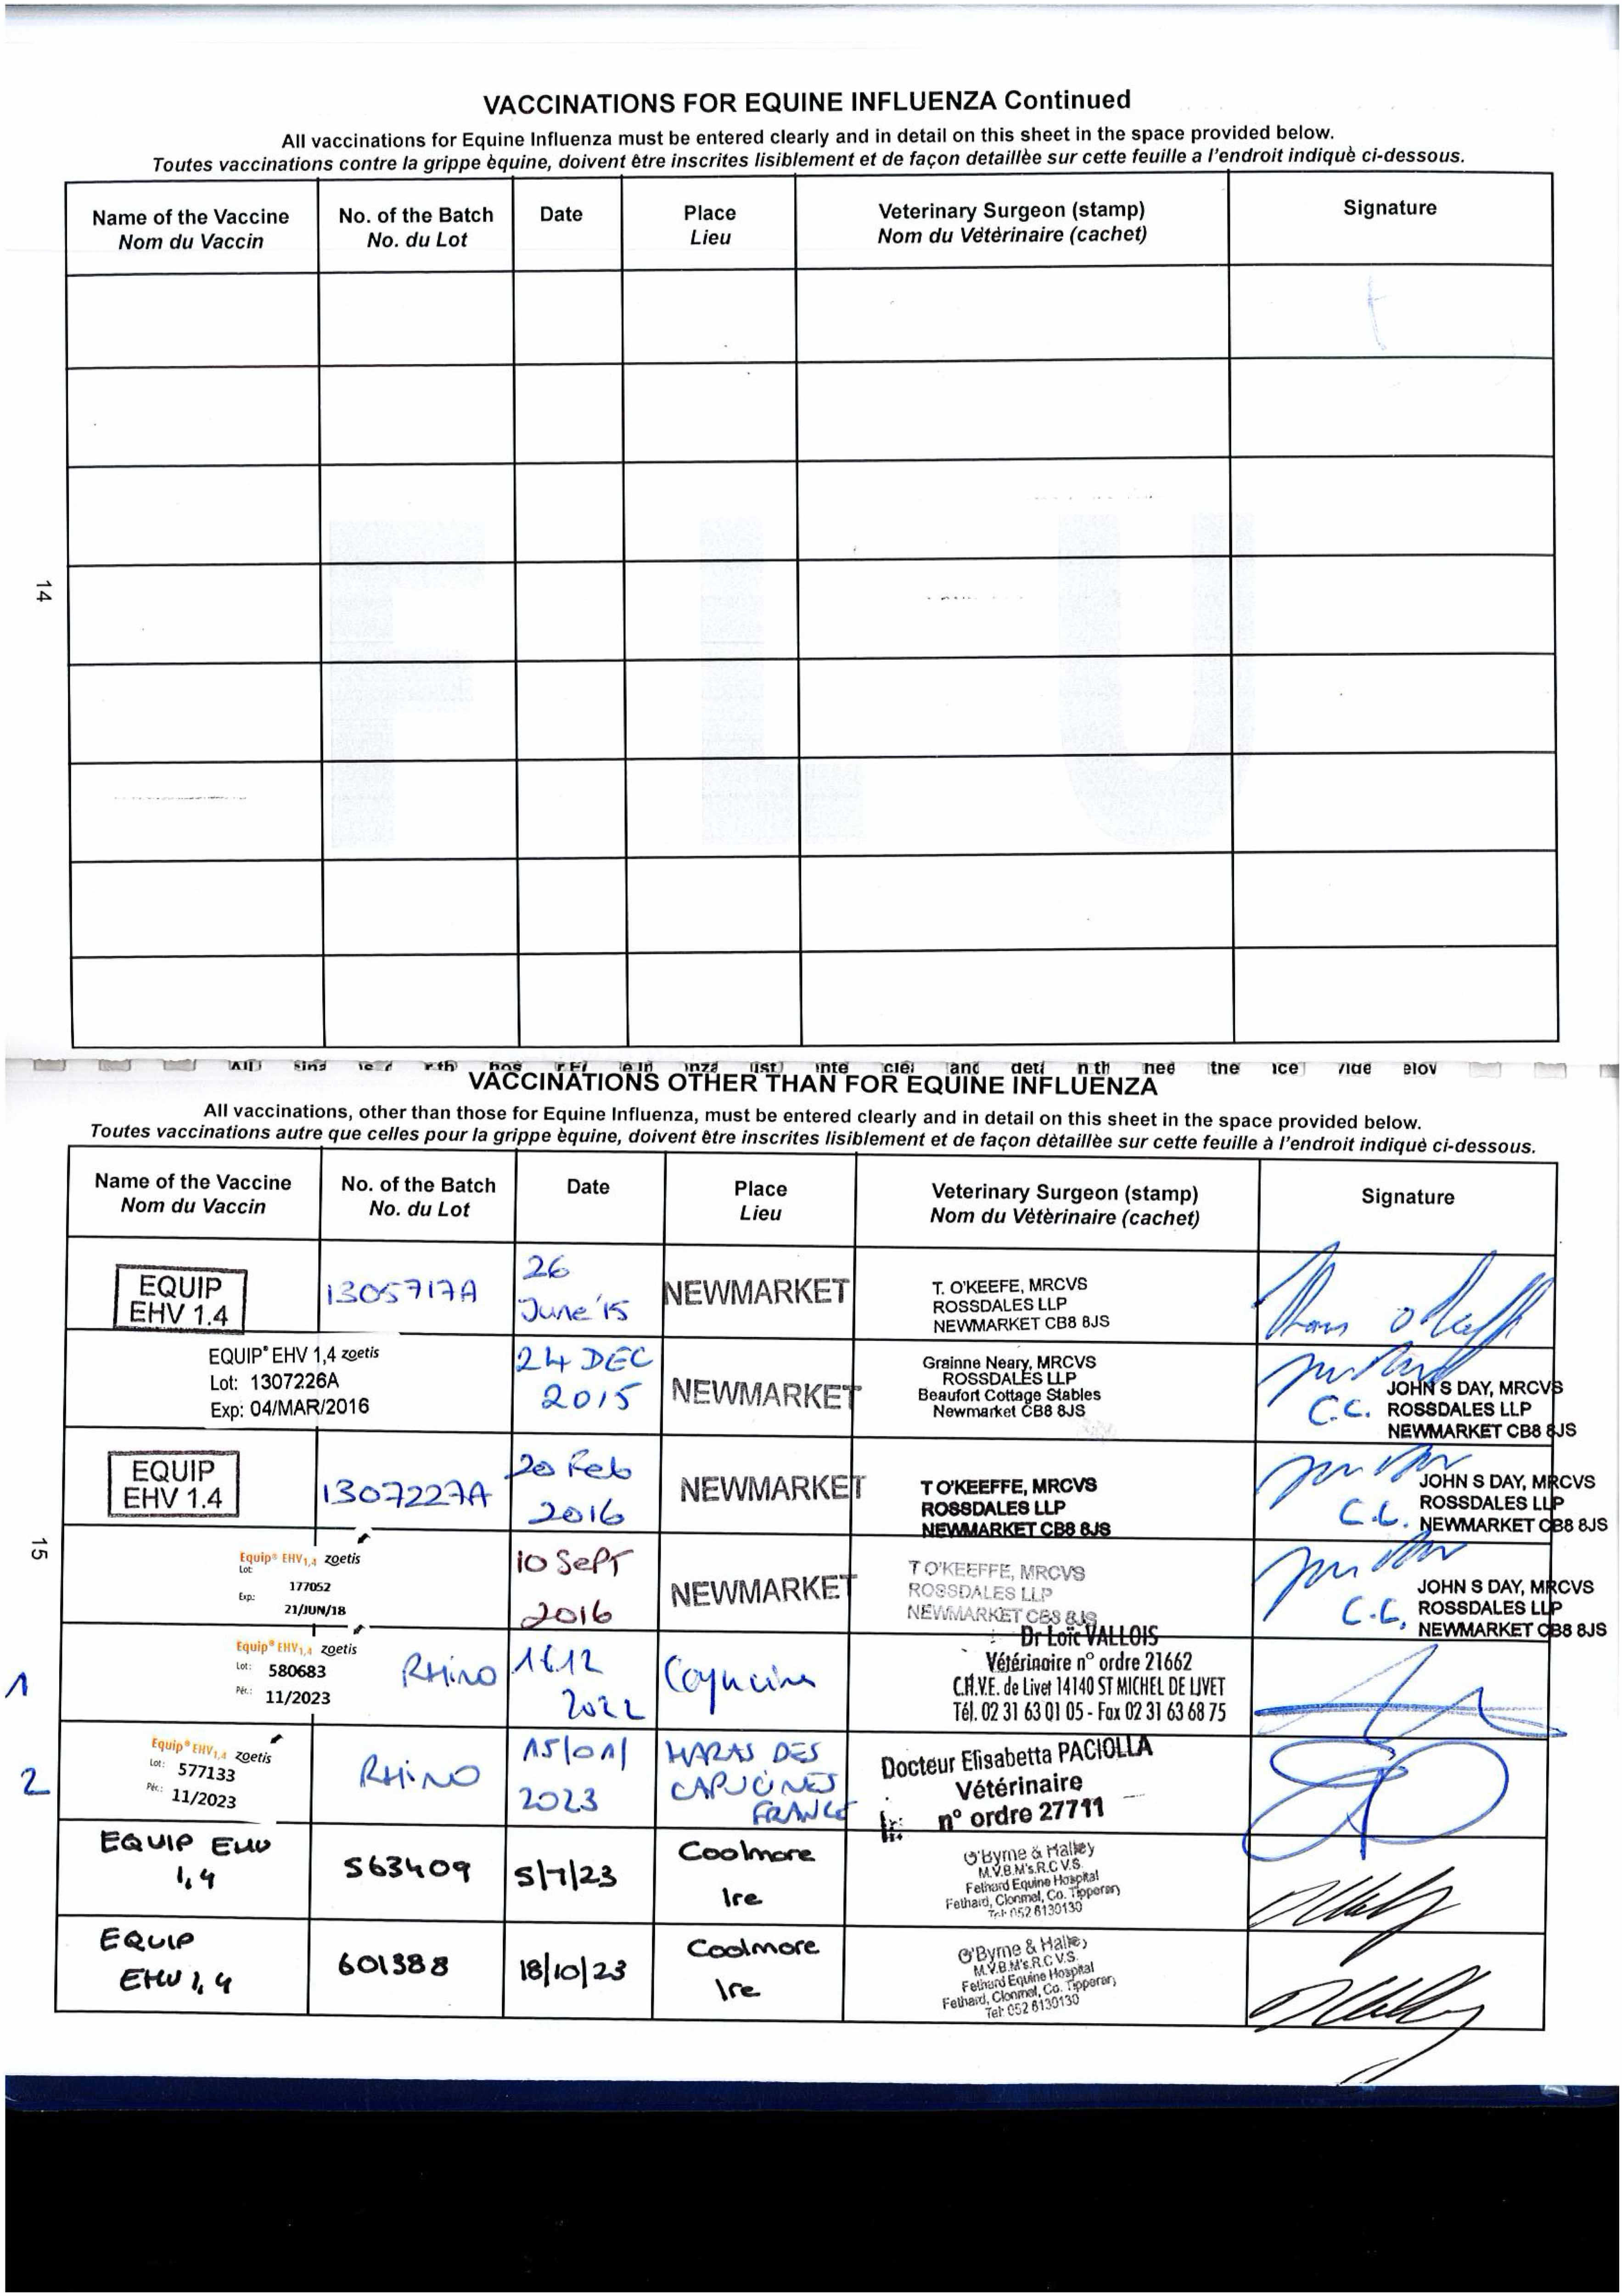 VACCINATIONS FOR EQUINE INFLUENZA Continued
All vaccinations for Equine Influenza must be entered clearly and in detail on this sheet in the space provided below.
Toutes vaccinations contre la grippe èquine, doivent être inscrites lisiblement et de façon detaillèe sur cette feuille a l'endroit indiquè ci-dessous.
Name of the Vaccine
Nom du Vaccin
No. of the Batch
No. du Lot
Date
Place
Lieu
Veterinary Surgeon (stamp)
Nom du Vétèrinaire (cachet)
Signature
FLU
14
VACCINATIONS OTHER THAN FOR EQUINE INFLUENZA
All vaccinations, other than those for Equine Influenza, must be entered clearly and in detail on this sheet in the space provided below.
Toutes vaccinations autre que celles pour la grippe èquine, doivent être inscrites lisiblement et de façon dètaillèe sur cette feuille à l'endroit indiquè ci-dessous.
Name of the Vaccine
Nom du Vaccin
No. of the Batch
No. du Lot
Date
Place
Lieu
Veterinary Surgeon (stamp)
Nom du Vètèrinaire (cachet)
Signature
EQUIP
EHV 1.4
1305717A
26
June '15
NEWMARKET
T. O'KEEFE, MRCVS
ROSSDALES LLP
NEWMARKET CB8 8JS
EQUIP® EHV 1,4 zoetis
Lot: 1307226A
Exp: 04/MAR/2016
24 DEC
2015
NEWMARKET
Grainne Neary, MRCVS
ROSSDALES LLP
Beaufort Cottage Stables
Newmarket CB8 8JS
C.C.
JOHN S DAY, MRCVS
ROSSDALES LLP
NEWMARKET CB8 8JS
EQUIP
EHV 1.4
1307227A
20 Feb
2016
NEWMARKET
T O'KEEFFE, MRCVS
ROSSDALES LLP
NEWMARKET CB8 8JS
C.C.
JOHN S DAY, MRCVS
ROSSDALES LLP
NEWMARKET CB8 8JS
15
Equip® EHV1,4 zoetis
Lot:
177052
Exp:
21/JUN/18
10 SePT
2016
NEWMARKET
T O'KEEFFE, MRCVS
ROSSDALES LLP
NEWMARKET CB8 8JS
C.C.
JOHN S DAY, MRCVS
ROSSDALES LLP
NEWMARKET CB8 8JS
1
Equip® EHV1,4 zoetis
Lot: 580683
Pér.: 11/2023
RHINO
16.12
2022
Dr Loïc VALLOIS
Vétérinaire n° ordre 21662
C.H.V.E. de Livet 14140 ST MICHEL DE LIVET
Tél. 02 31 63 01 05 - Fax 02 31 63 68 75
2
Equip® EHV1,4 zoetis
Lot: 577133
Pér.: 11/2023
RHINO
15/01/
2023
HARAS DES
CAPUCINES
FRANCE
Docteur Elisabetta PACIOLLA
Vétérinaire
n° ordre 27711
EQUIP EHV
1,4
563409
5/7/23
Coolmore
Ire
O'Byrne & Halley
M.V.B.M's.R.C.V.S.
Fethard Equine Hospital
Fethard, Clonmel, Co. Tipperary
Tel: 052 6130130
EQUIP
EHV 1,4
601388
18/10/23
Coolmore
Ire
O'Byrne & Halley
M.V.B.M's.R.C.V.S.
Fethard Equine Hospital
Fethard, Clonmel, Co. Tipperary
Tel: 052 6130130